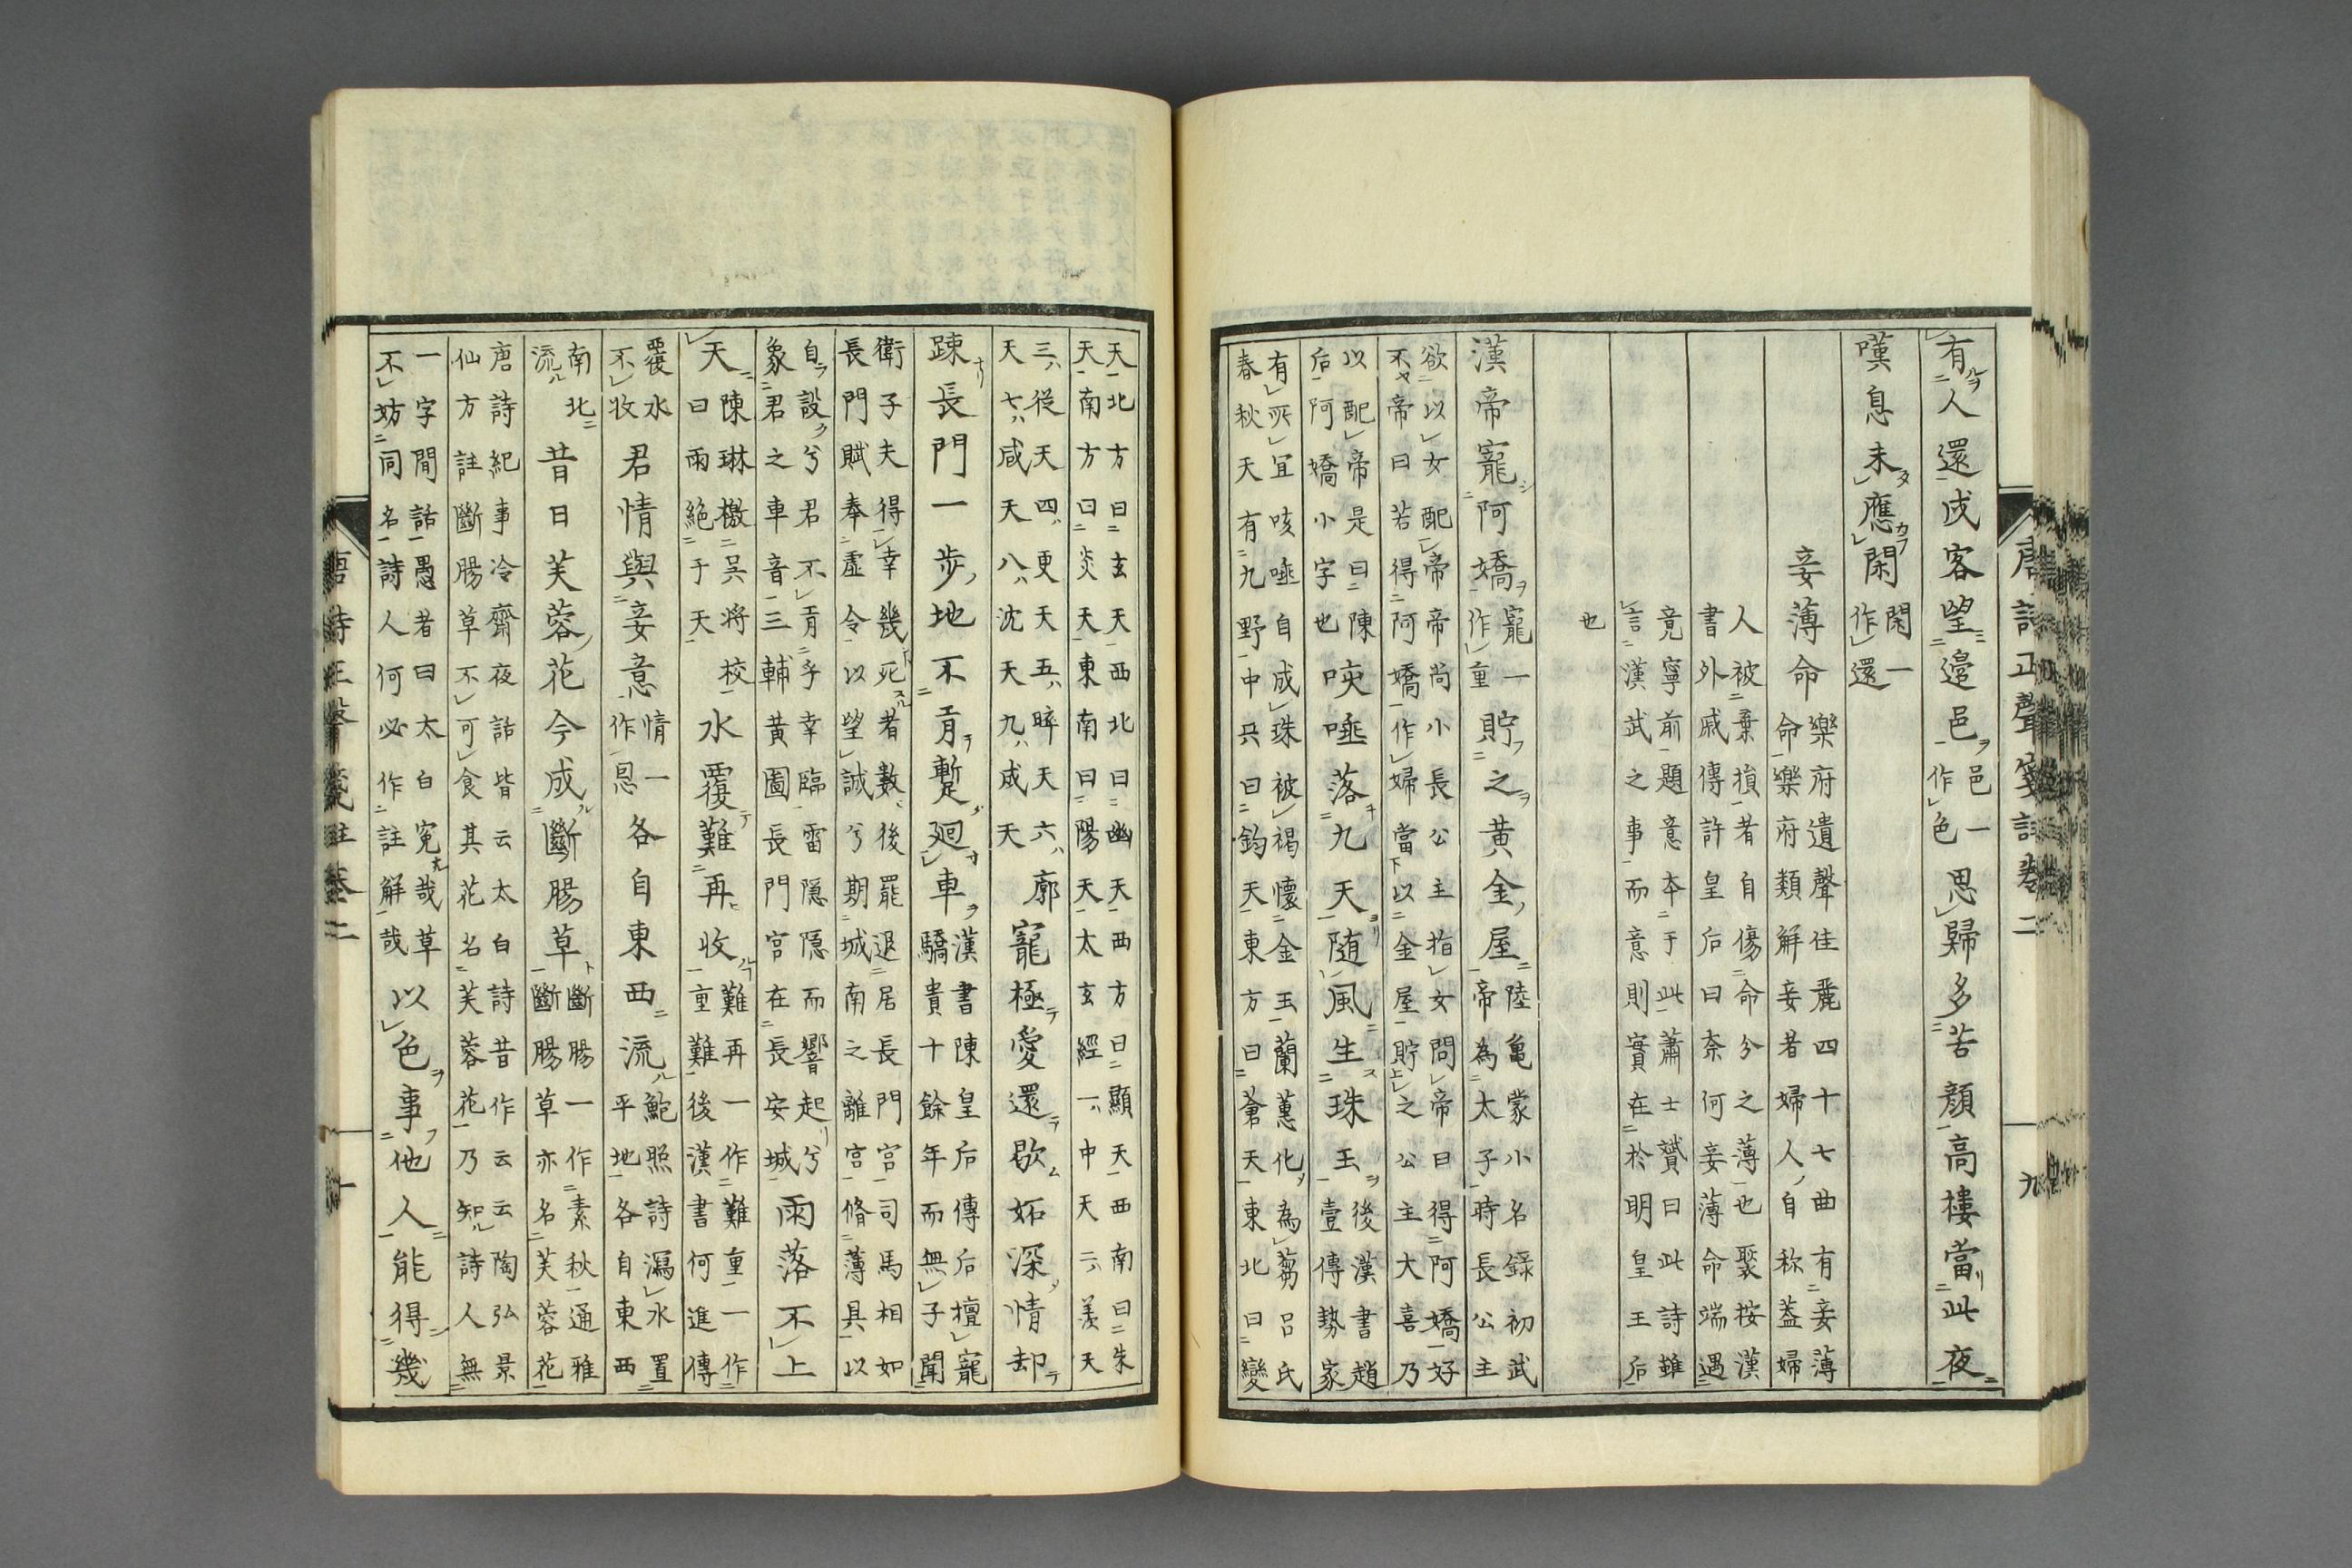 唐詩正聲箋註卷二 九
有人還戍客望邊邑邑一作色思歸多苦顏高樓當此夜
嘆息未應閑閑一作還
妾薄命樂府遺聲佳麗四十七曲有妾薄命樂府類解妾者婦人自称蓋婦
人被棄損者自傷命兮之薄也聚按漢
書外戚傳許皇后曰奈何妾薄命端遇
竟寧前題意本于此蕭士贇曰此詩雖
言漢武之事而意則實在於明皇王后
也
漢帝寵阿嬌寵一作重貯之黃金屋陸亀蒙小名録初武帝為太子時長公主
欲以女配帝帝尚小長公主指女問帝曰得阿嬌好
不帝曰若得阿嬌作婦當以金屋貯之公主大喜乃
以配帝是曰陳后阿嬌小字也咳唾落九天随風生珠玉後漢書趙壹傳勢家
有所宜咳唾自成珠被褐懷金玉蘭蕙化為蒭呂氏
春秋天有九野中央曰鈞天東方曰蒼天東北曰變
天北方曰玄天西北曰幽天西方曰顥天西南曰朱
天南方曰炎天東南曰陽天太玄經一中天二羨天
三從天四更天五睟天六廓天七咸天八沈天九成天寵極愛還歇妬深情却
踈長門一步地不肯暫廻車漢書陳皇后傳后擅寵驕貴十餘年而無子聞
衛子夫得幸幾死者數後罷退居長門宮司馬相如
長門賦奉虛令以望誠兮期城南之離宮脩薄具以
自設兮君不肯乎幸臨雷隱隱而響起兮象君之車音三輔黃圖長門宮在長安城雨落不上
天陳琳檄吳将校曰雨絕于天水覆難再收難再一作難重一作重難後漢書何進傳
覆水不收君情與妾意情一作恩各自東西流鮑照詩瀉水置平地各自東西
南北流昔日芙蓉花今成斷腸草斷腸一作素秋通雅斷腸草亦名芙蓉花
唐詩紀事冷齋夜話皆云太白詩昔作云云陶弘景
仙方註斷腸草不可食其花名芙蓉花乃知詩人無
一字閒話愚者曰太白冤哉草不妨同名詩人何必作註解哉以色事他人能得幾
唐詩正聲箋註卷二 十